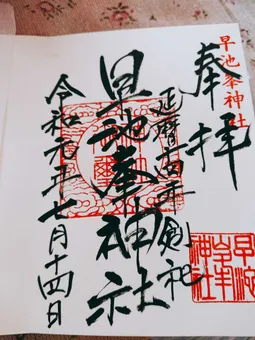 早池峯神社
奉拝
延暦
年創祀
早池峯神社
令和元年七月十四日
早池
峯
神社